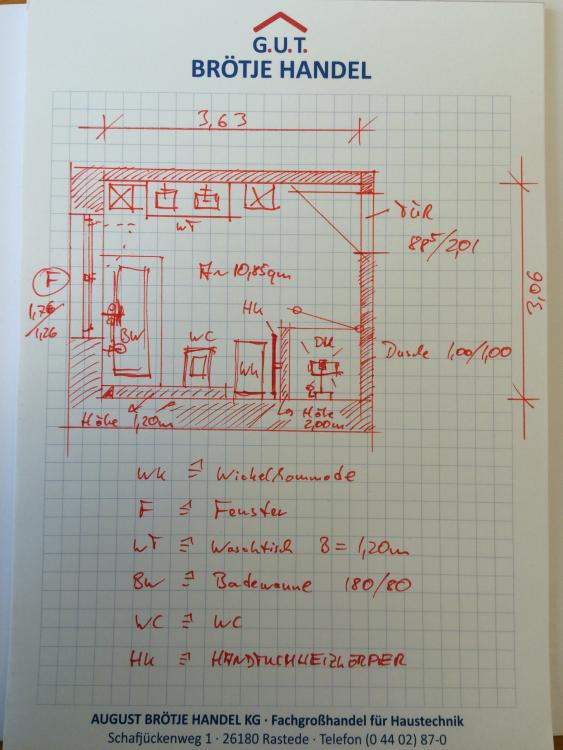 G.U.T.
BRÖTJE HANDEL
3,63
WT
TÜR
88⁵/2,01
A ~ 10,85qm
F
1,76
1,26
3,06
HK
BW
WC
WK
DU
Dusche 1,00/1,00
Höhe 1,20m
Höhe
2,00m
WK ≙ Wickelkommode
F ≙ Fenster
WT ≙ Waschtisch B = 1,20m
BW ≙ Badewanne 180/80
WC ≙ WC
HK ≙ HANDTUCHHEIZKÖRPER
AUGUST BRÖTJE HANDEL KG · Fachgroßhandel für Haustechnik
Schafjückenweg 1 · 26180 Rastede · Telefon (0 44 02) 87-0